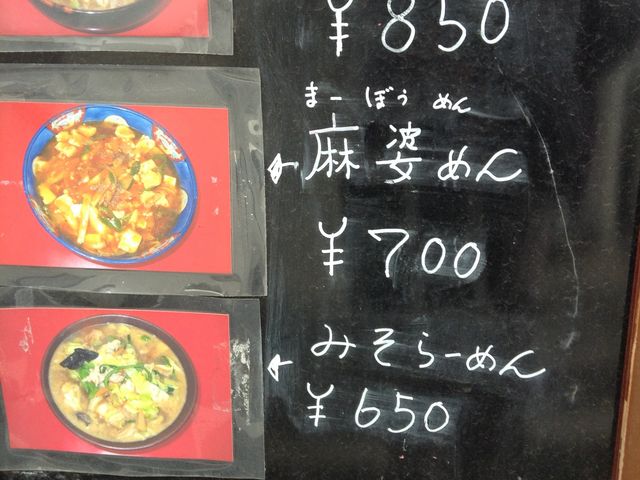 ¥850
まーぼぅ めん
麻婆めん
¥700
みそらーめん
¥650